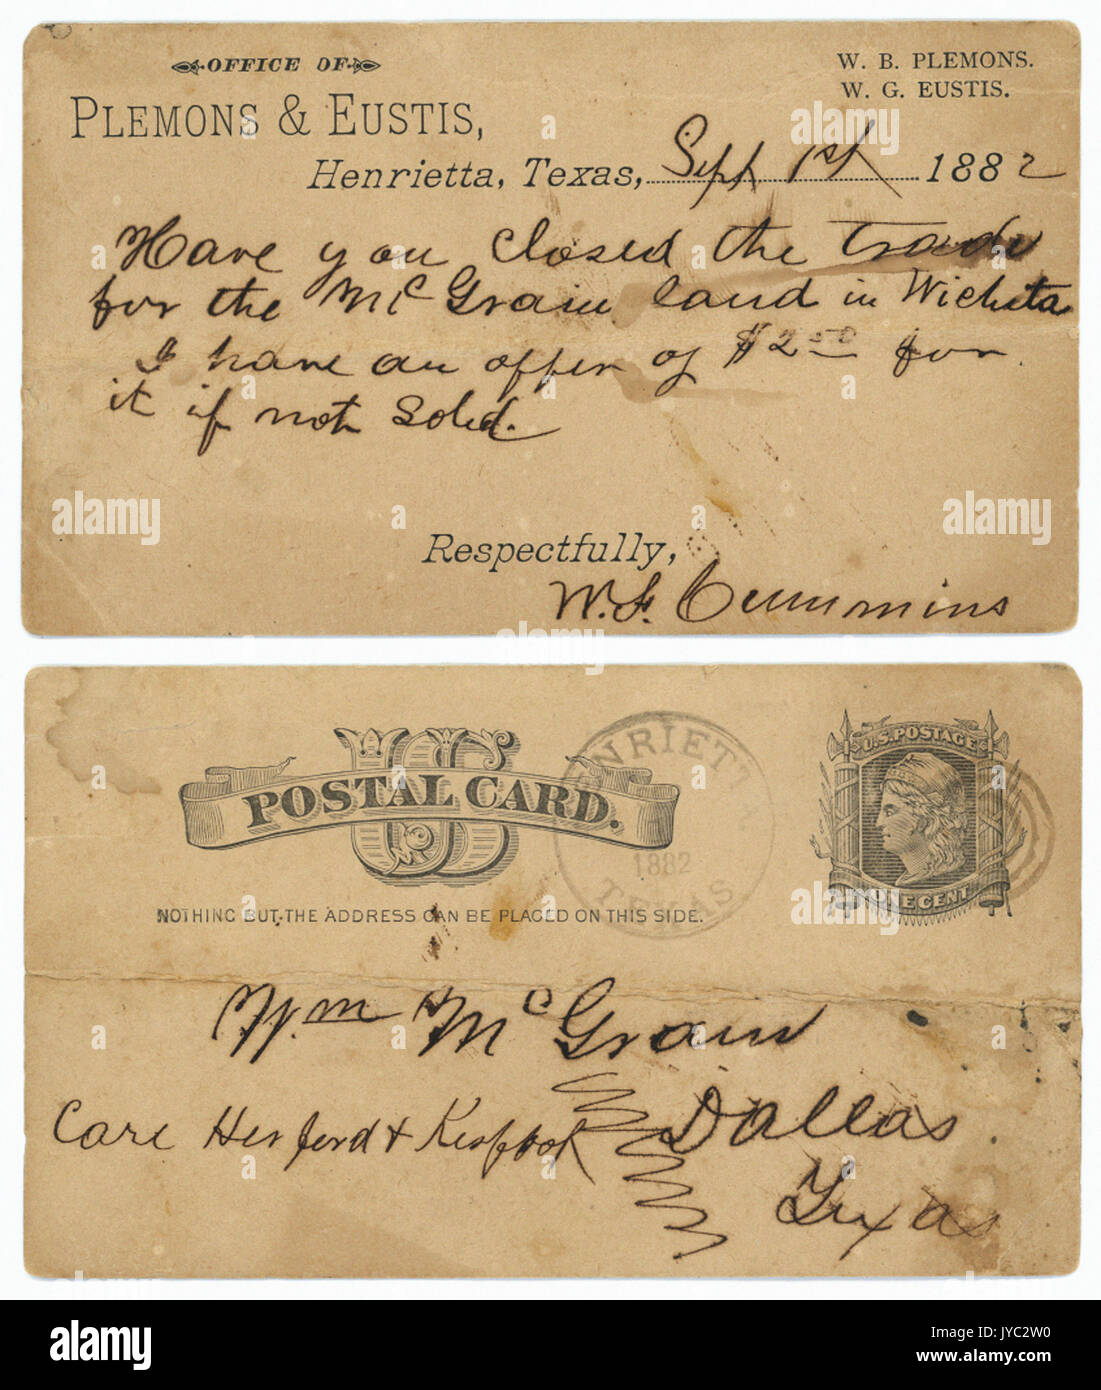 OFFICE OF
PLEMONS & EUSTIS,
W. B. PLEMONS.
W. G. EUSTIS.
Henrietta, Texas, Sept 1st 1882
Have you closed the trade
for the McGrain land in Wichita
I have an offer of $2 50 for
it if not sold.
Respectfully,
W. F. Cummins
US
POSTAL CARD.
HENRIETTA
1882
TEXAS
U.S. POSTAGE
ONE CENT
NOTHING BUT THE ADDRESS CAN BE PLACED ON THIS SIDE.
Wm McGrain
Care Herford &
Dallas
Texas
a alamy
alamy
Image ID: JYC2W0
www.alamy.com